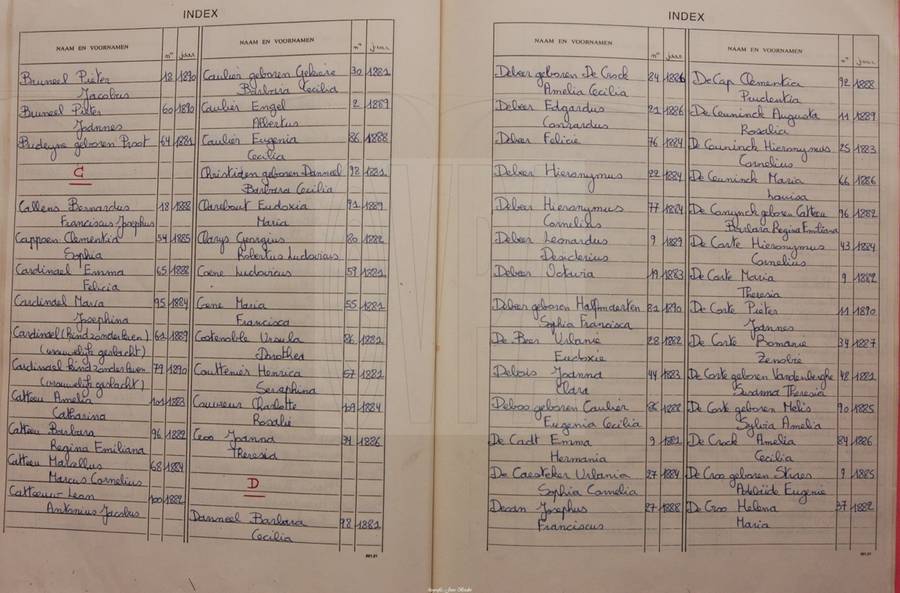 INDEX
NAAM EN VOORNAMEN n° jaar
Bruneel Pieter 18 1890
Jacobus
Bruneel Pieter 60 1890
Joannes
Brudeyne geboren Proot 64 1881
C
Callens Bernardus 18 1888
Franciscus Josephus
Cappoen Clementia 54 1885
Sophia
Cardinael Emma 65 1888
Felicia
Cardinael Maria 95 1884
Josephina
Cardinael (kind zonder leven) 61 1889
(vrouwelijk geslacht)
Cardinael kind zonder leven 79 1890
(vrouwelijk geslacht)
Catteeu Amelia 101 1883
Catharina
Catteeu Barbara 96 1882
Regina Emiliana
Catteeu Marcellus 68 1884
Marcus Cornelius
Catteeuw Leon 100 1882
Antonius Jacobus
NAAM EN VOORNAMEN n° jaar
Caulier geboren 30 1881
Barbara Cecilia
Caulier Engel 2 1889
Albertus
Caulier Eugenia 86 1888
Cecilia
Christiaen geboren Danneel 98 1881
Barbara Cecilia
Clarebout Eudoxia 91 1889
Maria
Clarys Georgius 80 1882
Robertus Ludovicus
Coene Ludovicus 59 1881
Coene Maria 55 1881
Francisca
Costenoble Ursula 86 1881
Dorothea
Couttenier Henrica 57 1881
Seraphina
Couvreur Charlotte 109 1884
Rosalie
Joanna 1886
Theresia
D
Danneel Barbara 98 1881
Cecilia
601.01
INDEX
NAAM EN VOORNAMEN n° jaar
Debeer geboren De Crock 84 1886
Amelia Cecilia
Debeer Edgardus 21 1886
Conrardus
Debeer Felicie 76 1884
Debeer Hieronymus 22 1884
Debeer Hieronymus 77 1884
Cornelius
Debeer Leonardus 9 1889
Desiderius
Debeer 19 1883
Debeer geboren Halfmaerten 81 1890
Sophia Francisca
De Beer Urlanie 28 1882
Eudoxie
Debois Joanna 44 1883
Clara
Deboo geboren Caulier 86 1888
Eugenia Cecilia
De Cadt Emma 9 1881
Hermania
De Caesteker Urlania 27 1884
Sophia Cornelia
Decan Josephus 27 1888
Franciscus
NAAM EN VOORNAMEN n° jaar
De Cap Clementia 92 1888
Prudentia
De Ceuninck Augusta 11 1889
Rosalia
De Ceuninck Hieronymus 25 1883
Cornelius
De Ceuninck Maria 66 1886
Louisa
De Conynck geboren Catteeu 96 1882
Barbara Regina Emiliana
De Corte Hieronymus 43 1884
Cornelius
De Corte Maria 9 1882
Theresia
De Corte Pieter 11 1890
Joannes
De Corte Romanie 34 1887
Zenobie
De Corte geboren Vandenberghe 48 1881
Susanna Theresia
De Corte geboren Melis 90 1885
Sylvia Amelia
De Crock Amelia 84 1886
Cecilia
De Croo geboren 9 1885
Adelaïde Eugenie
De Croo Helena 37 1882
Maria
601.01